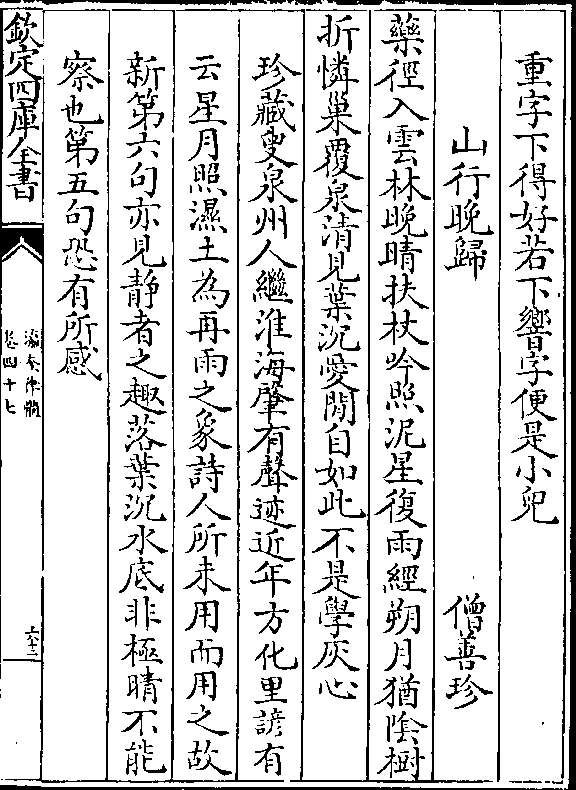 重字下得好若下響字便是小兒
山行晚歸　僧善珍
藥徑入雲林晚晴扶杖吟照泥星復雨經朔月猶陰樹
折憐巢覆泉清見葉沉愛閒自如此不是學灰心
珍藏叟泉州人繼淮海肇有聲迹近年方化里諺有
云星月照濕土為再雨之象詩人所未用而用之故
新第六句亦見靜者之趣落葉沉水底非極晴不能
察也第五句恐有所感
欽定四庫全書
瀛奎律髓
卷四十七
六十三